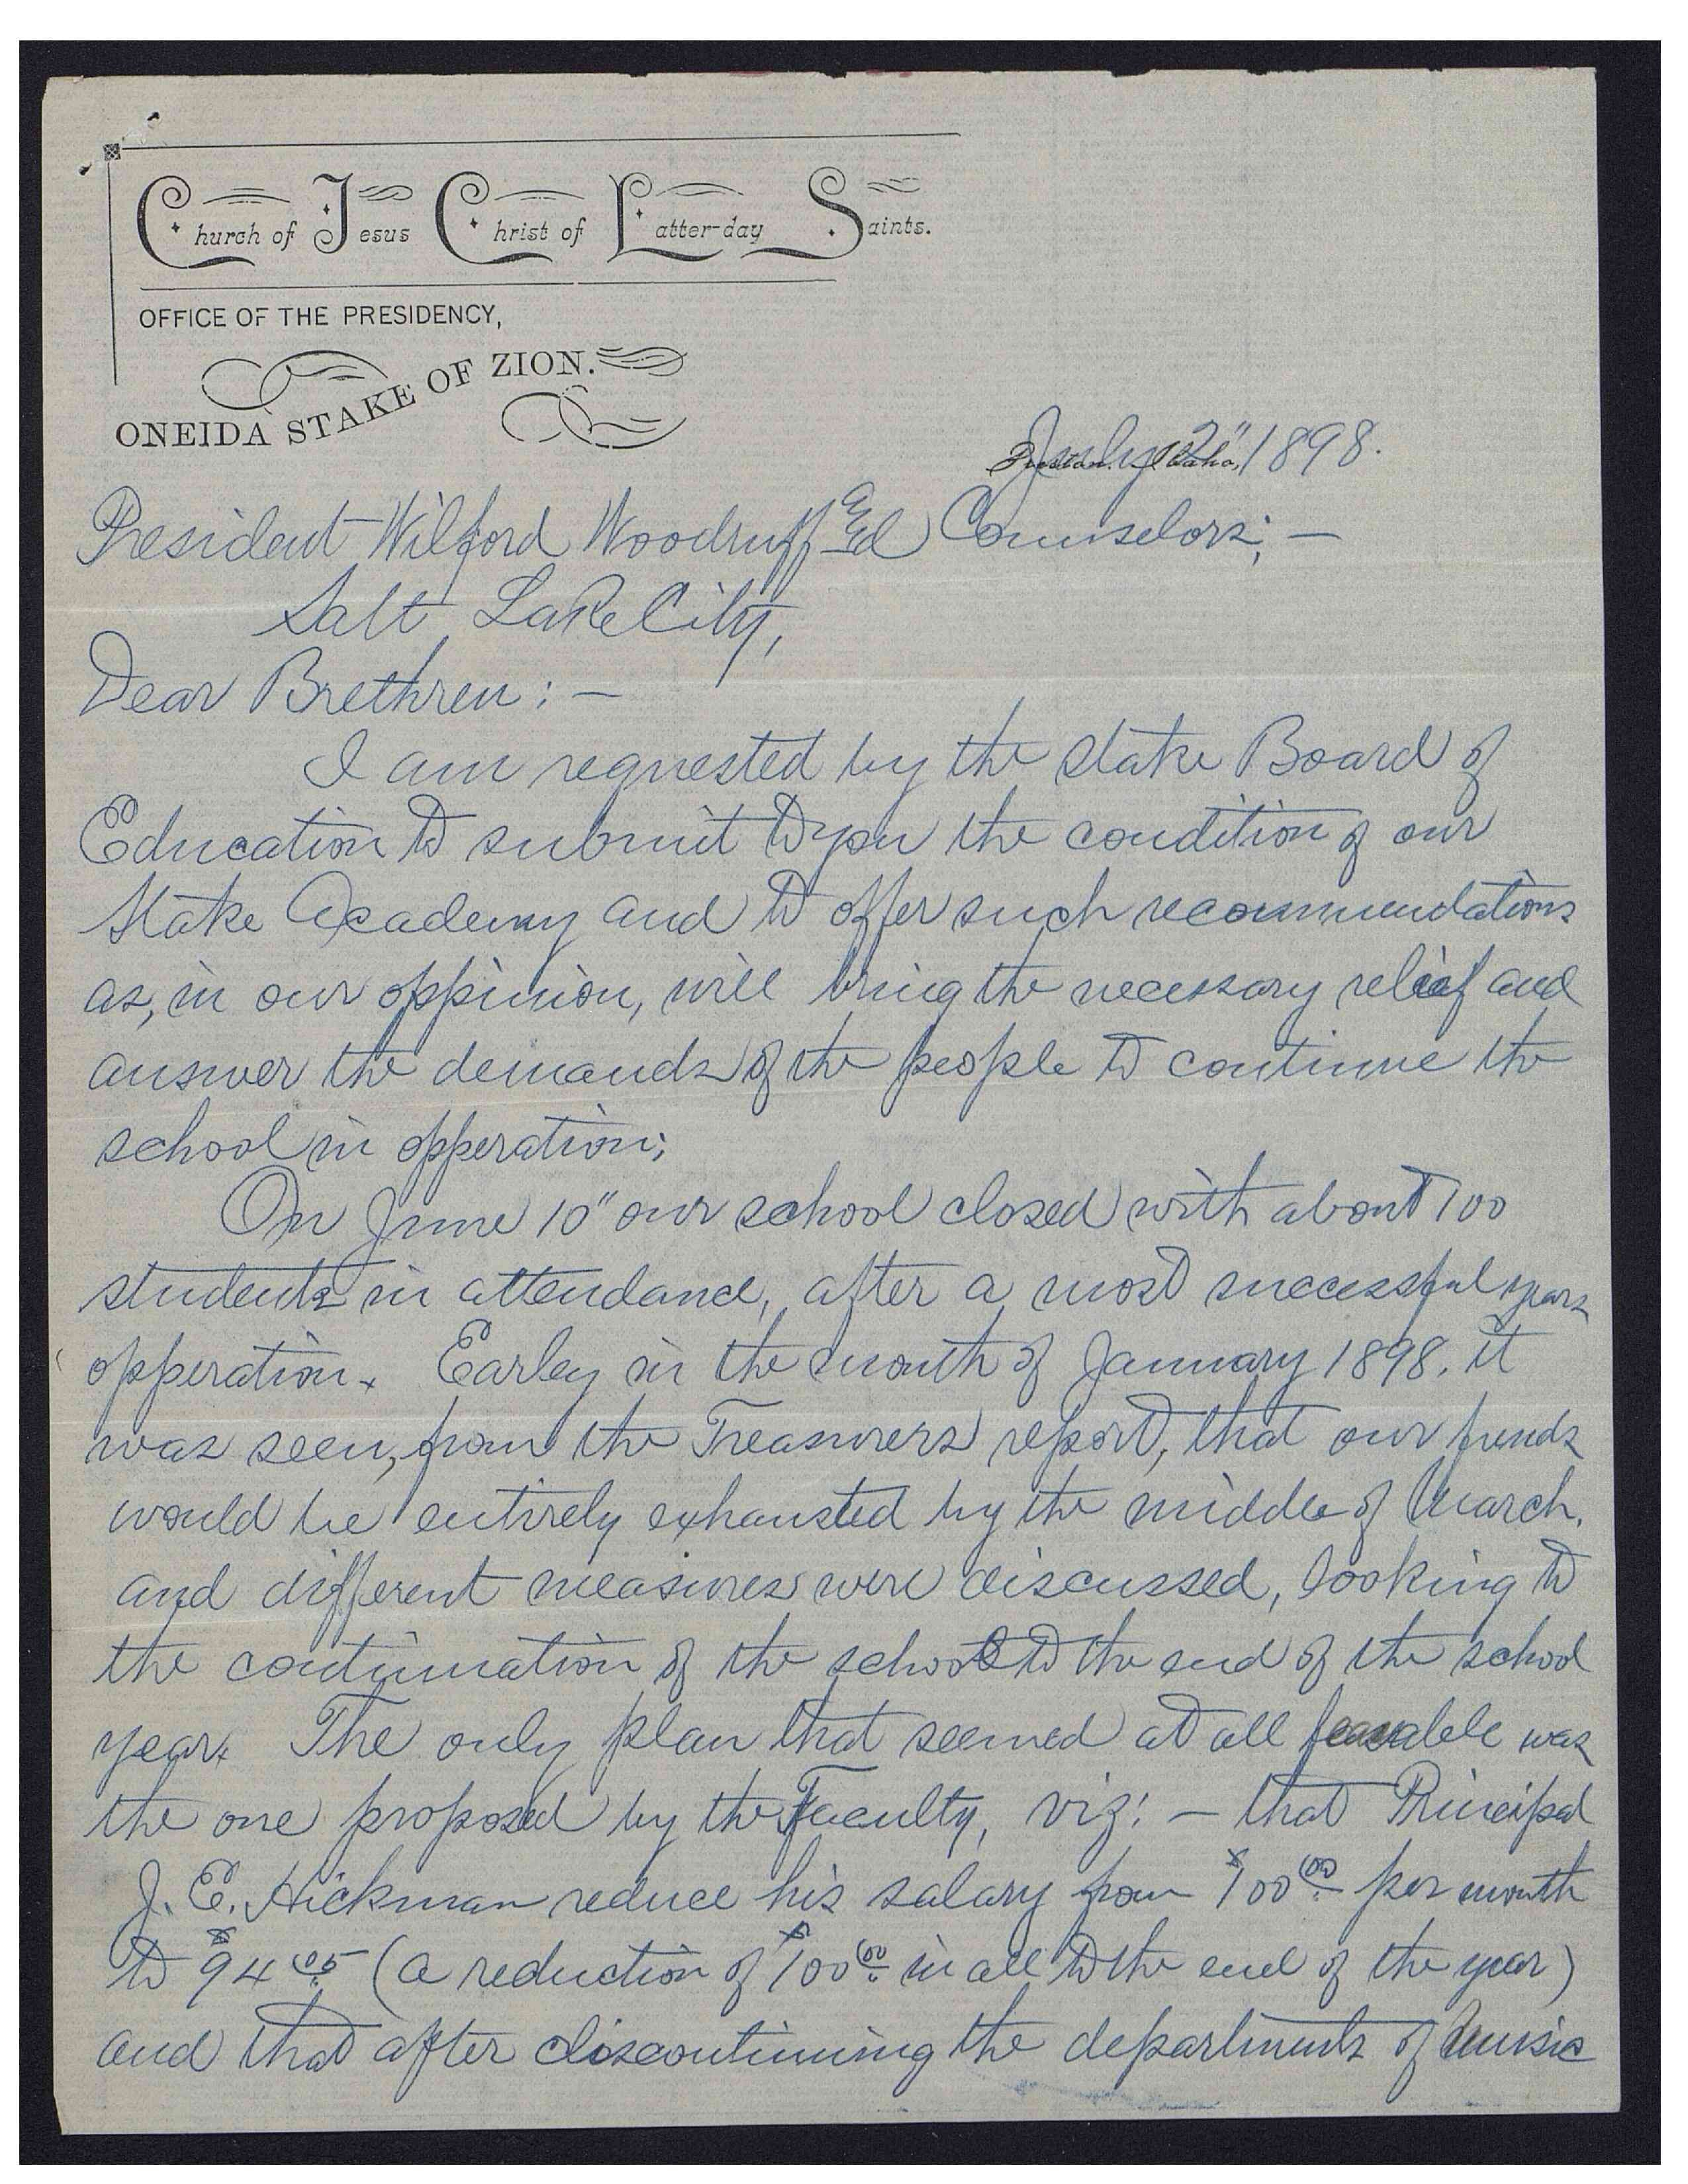 Church of Jesus Christ of Latter-day Saints.
OFFICE OF THE PRESIDENCY,
ONEIDA STAKE OF ZION.
Preston, Idaho, July 2" 1898.
President Wilford Woodruff Counselors; —
Salt Lake City,
Dear Brethren: —
I am requested by the Stake Board of
Education to submit to you the condition of our
Stake Academy and to offer such recommendations
as, in our oppinion, will bring the necessary relief and
answer the demands of the people to continue the
school in opperation;
On June 10" our school closed with about 100
students in attendance, after a most successful years
opperation. Earley in the month of January 1898. it
was seen, from the Treasurers report, that our funds
would be entirely exhausted by the middle of March.
and different measures were discussed, looking to
the continuation of the school to the end of the school
year. The only plan that seemed at all feasable was
the one proposed by the Faculty, viz: — that Principal
J. E. Hickman reduce his salary from $100 00 per month
to $94 (a reduction of $100 00 in all to the end of the year)
and that after discontinuing the departments of music